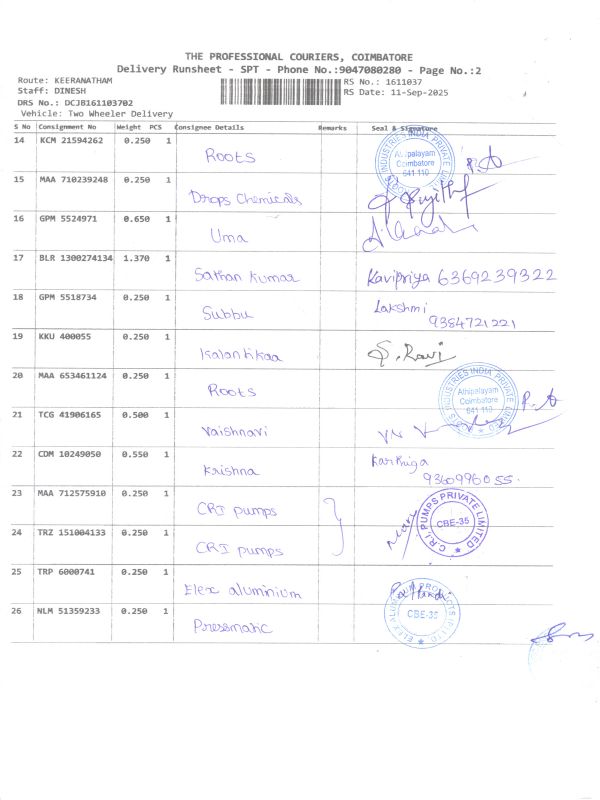 THE PROFESSIONAL COURIERS, COIMBATORE
Delivery Runsheet - SPT - Phone No.:9047080280 - Page No.:2
Route: KEERANATHAM
RS No.: 1611037
Staff: DINESH
RS Date: 11-Sep-2025
DRS No.: DCJB161103702
Vehicle: Two Wheeler Delivery
S No Consignment No Weight PCS Consignee Details Remarks Seal & Signature
14 KCM 21594262 0.250 1 Roots ROOTS INDUSTRIES INDIA PRIVATE LIMITED Athipalayam Coimbatore 641 110 R.A
15 MAA 710239248 0.250 1 Drops Chemicals
16 GPM 5524971 0.650 1 Uma
17 BLR 1300274134 1.370 1 Sathan Kumar Kavipriya 6369239322
18 GPM 5518734 0.250 1 Subbu Lakshmi 9384721221
19 KKU 400055 0.250 1 S. Ravi
20 MAA 653461124 0.250 1 Roots ROOTS INDUSTRIES INDIA PRIVATE LIMITED Athipalayam Coimbatore 641 110 R.A
21 TCG 41906165 0.500 1 Vaishnavi
22 CDM 10249050 0.550 1 Krishna Karthiga 9360996055.
23 MAA 712575910 0.250 1 CRI pumps C.R.I. PUMPS PRIVATE LIMITED CBE-35
24 TRZ 151004133 0.250 1 CRI pumps
25 TRP 6000741 0.250 1 Elex aluminium ELEX ALUMINIUM PRODUCTS (P) LTD. CBE-35
26 NLM 51359233 0.250 1 Pressmatic